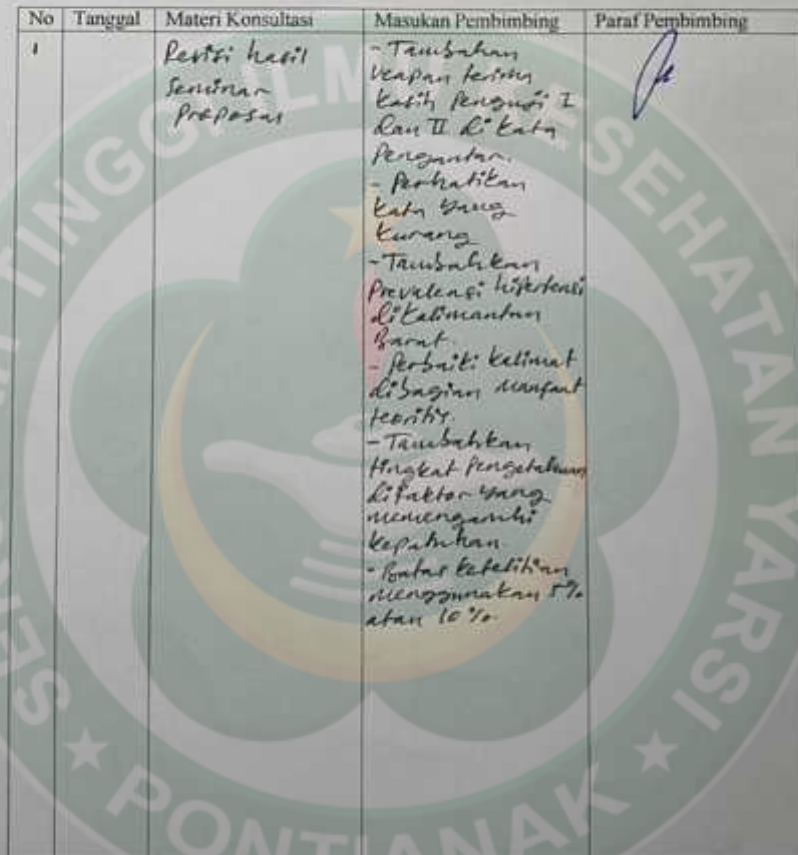 No Tanggal Materi Konsultasi Masukan Pembimbing Paraf Pembimbing
1
Revisi hasil
Seminar
Proposal
- Tambahan
ucapan terima
kasih Penguji I
dan II di kata
Pengantar.
- Perhatikan
kata yang
kurang
- Tambahkan
Prevalensi hipertensi
di Kalimantan
Barat.
- Perbaiki kalimat
dibagian manfaat
teoritis.
- Tambahkan
tingkat Pengetahuan
difaktor yang
memengaruhi
kepatuhan.
- Batas ketelitian
menggunakan 5%
atau 10%.
TINGGI ILMU KESEHATAN YARSI
PONTIANAK